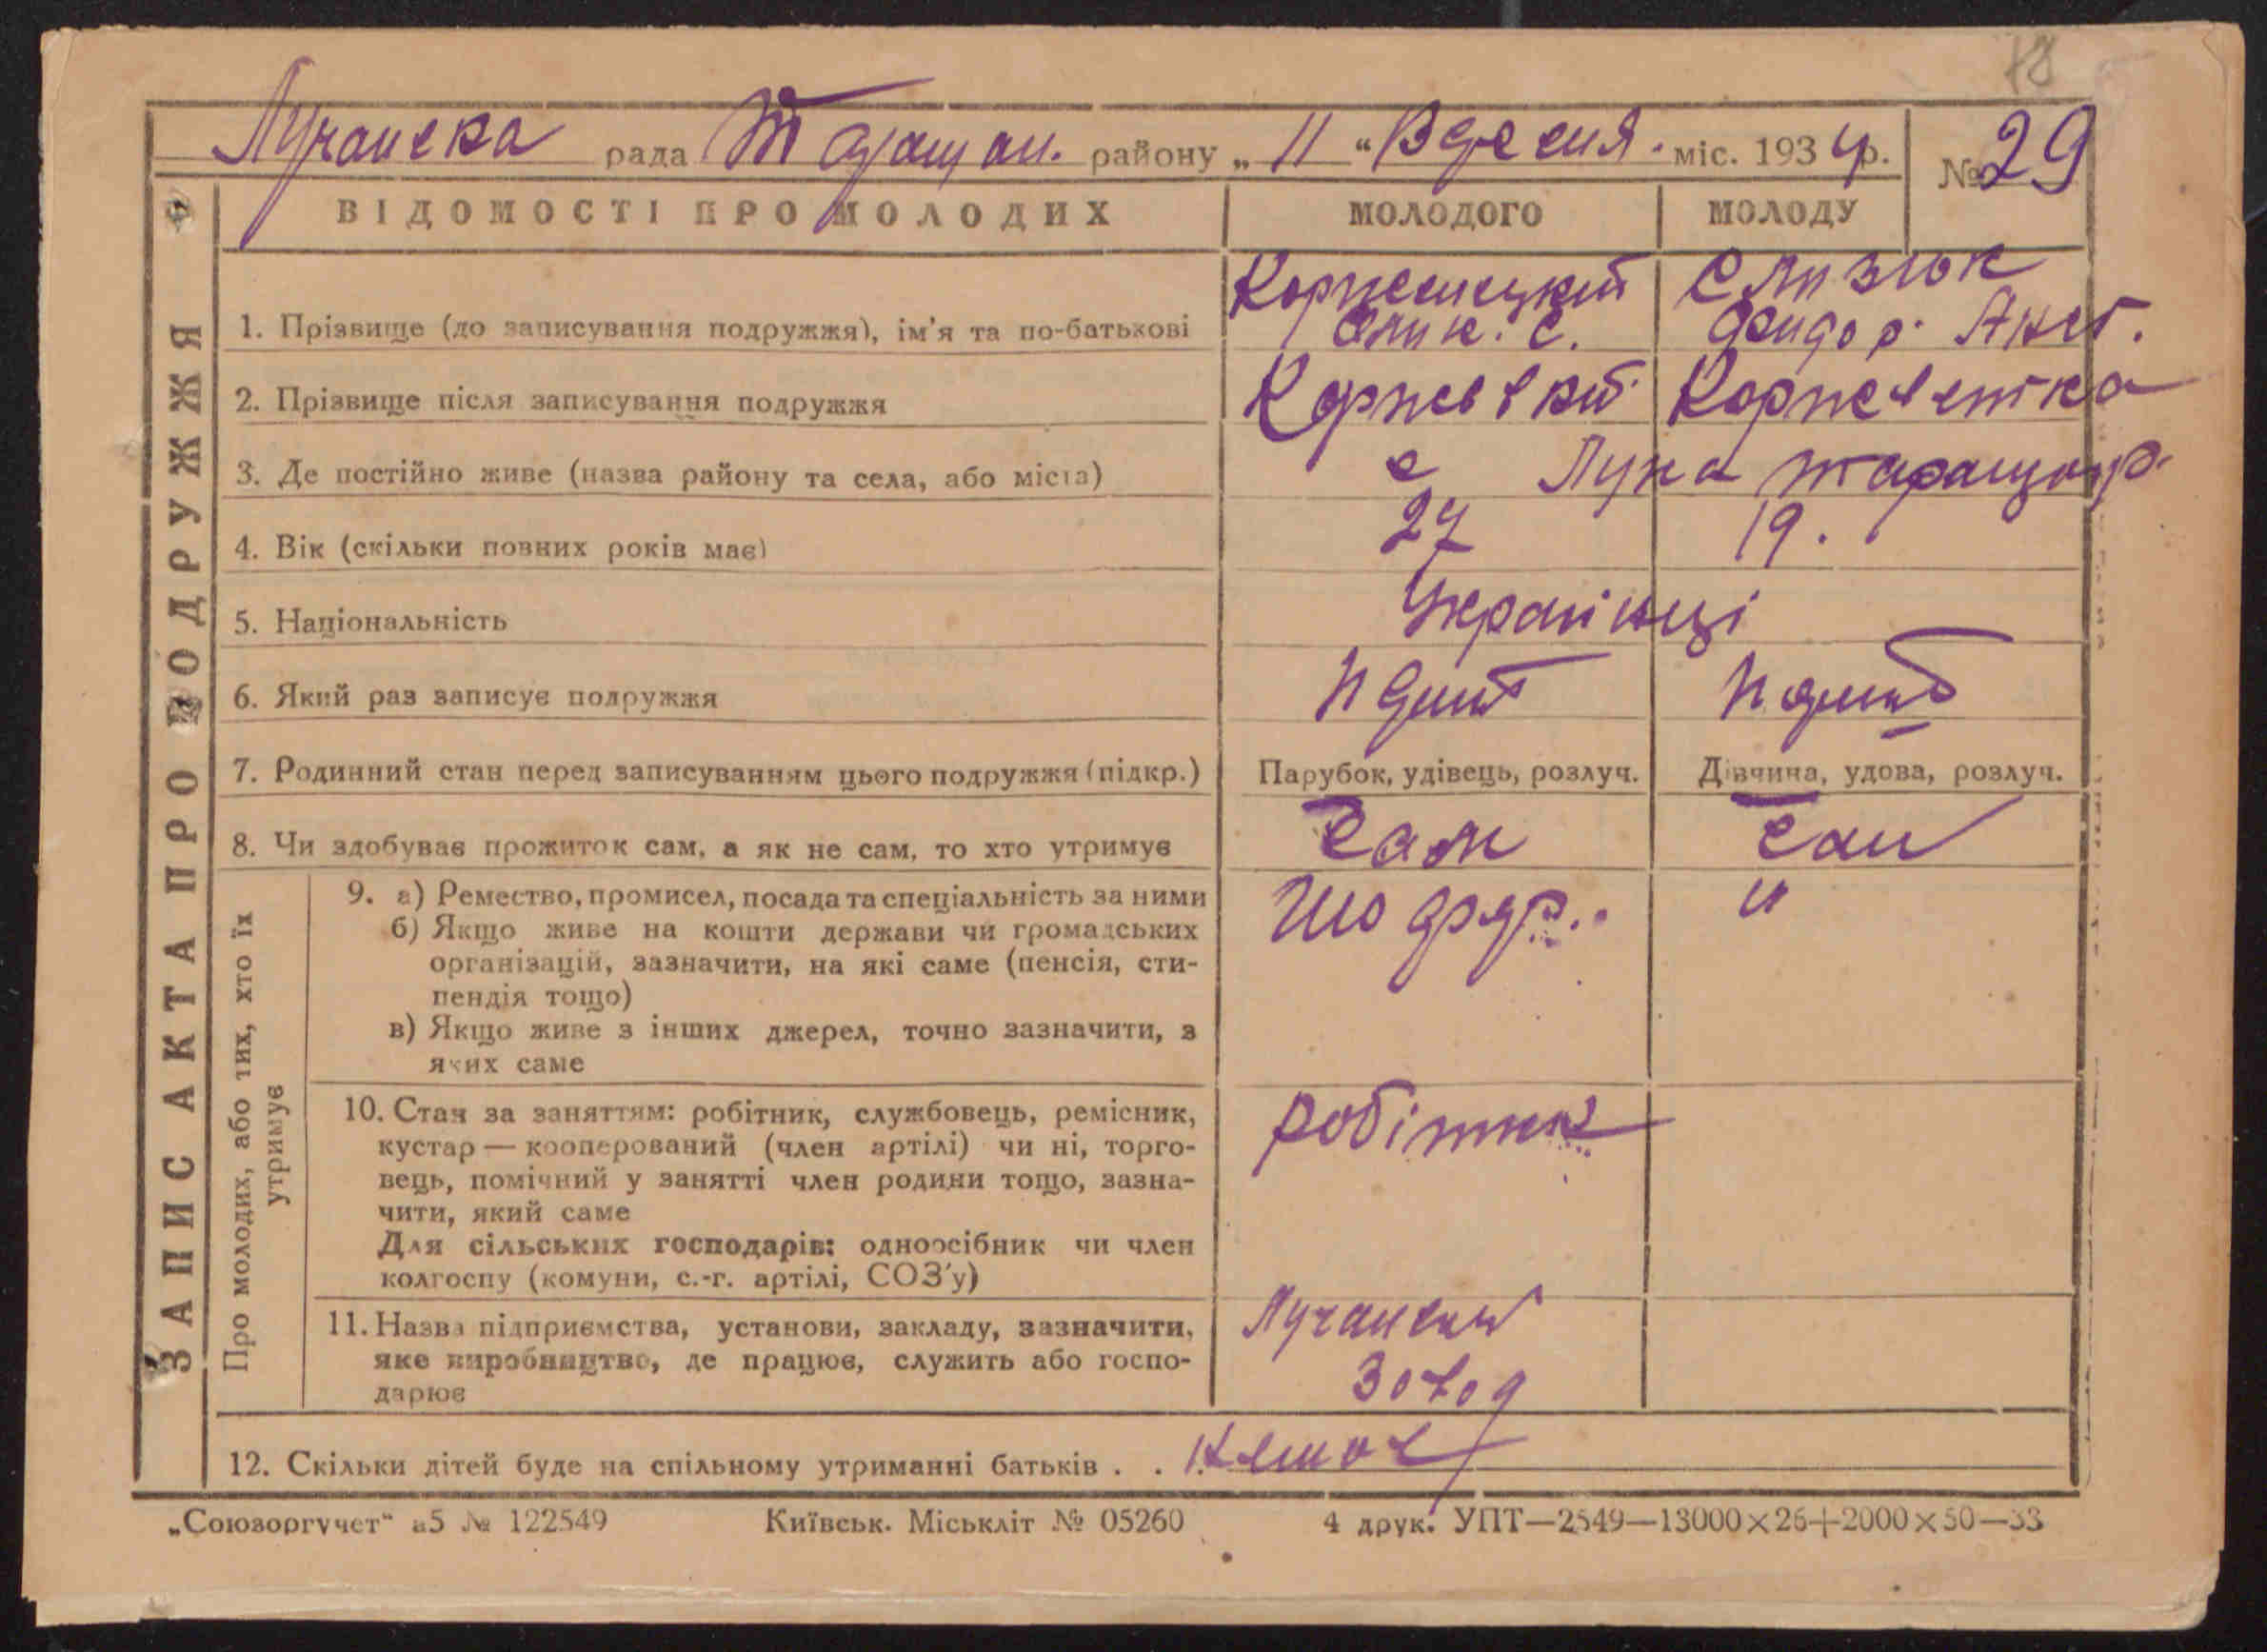 18
Лучанська рада Таращан. району „11“ Вересня. міс. 1934 р. № 29
ВІДОМОСТІ ПРО МОЛОДИХ МОЛОДОГО МОЛОДУ
ЗАПИС АКТА ПРО ПОДРУЖЖЯ
1. Прізвище (до записування подружжя), ім'я та по-батькові
2. Прізвище після записування подружжя
3. Де постійно живе (назва району та села, або міста) с Лука таращ р.
4. Вік (скільки повних років має) 27 19.
5. Національність Українці
6. Який раз записує подружжя
7. Родинний стан перед записуванням цього подружжя (підкр.) Парубок, удівець, розлуч. Дівчина, удова, розлуч.
8. Чи здобуває прожиток сам, а як не сам, то хто утримує Сам Сам
Про молодих, або тих, хто їх
утримує
9. а) Ремество, промисел, посада та спеціальність за ними "
б) Якщо живе на кошти держави чи громадських
організацій, зазначити, на які саме (пенсія, сти-
пендія тощо)
в) Якщо живе з інших джерел, точно зазначити, з
яких саме
10. Стан за заняттям: робітник, службовець, ремісник, робітник
кустар — кооперований (член артілі) чи ні, торго-
вець, помічний у занятті член родини тощо, зазна-
чити, який саме
Для сільських господарів: одноосібник чи член
колгоспу (комуни, с.-г. артілі, СОЗ'у)
11. Назва підприємства, установи, закладу, зазначити, Лучанский
яке виробництво, де працює, служить або госпо- Завод
дарює
12. Скільки дітей буде на спільному утриманні батьків . .
„Союзоргучет“ а5 № 122549 Київськ. Міськліт № 05260 4 друк. УПТ—2549—13000×26+2000×50—33